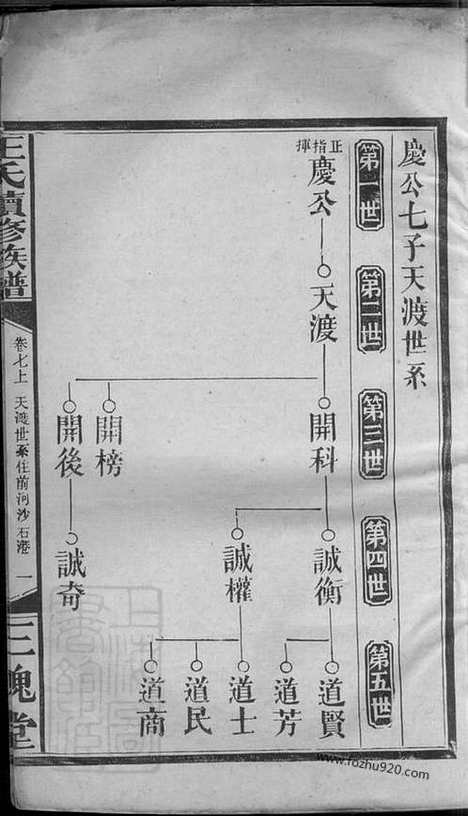 慶公七子天渡世系
第一世
第二世
第三世
第四世
第五世
正指揮
慶公
天渡
開科
開榜
開後
誠衡
誠權
誠奇
道賢
道芳
道士
道民
道商
王氏續修族譜
卷七上 天渡世系住前河沙石港 一
三槐堂
www.fozhu920.com